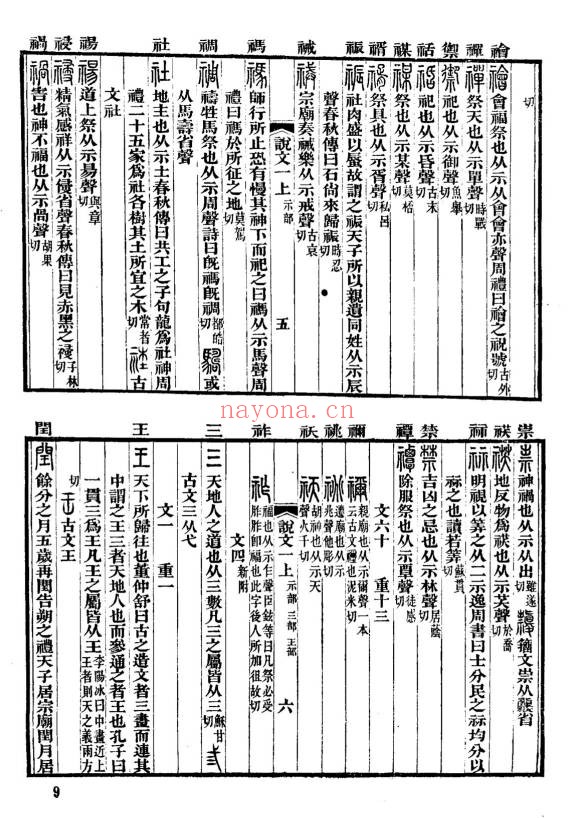 切
禬 會福祭也从示从會會亦聲周禮曰禬之祝號古外切
禪 祭天也从示單聲時戰切
禦 祀也从示御聲魚舉切
祀也从示昏聲古末切
禖 祭也从示某聲莫桮切
祭具也从示胥聲私呂切
祳 社肉盛以蜃故謂之祳天子所以親遺同姓从示辰
聲春秋傳曰石尚來歸祳時忍切
祴 宗廟奏祴樂从示戒聲古哀切
說文一上 示部 五
禡 師行所止恐有慢其神下而祀之曰禡从示馬聲周
禮曰禡於所征之地莫駕切
禂 禱牲馬祭也从示周聲詩曰旣禡旣禂都皓切 或
从馬壽省聲
社 地主也从示土春秋傳曰共工之子句龍爲社神周
禮二十五家爲社各樹其土所宜之木常者切 古
文社
禓 道上祭从示昜聲與章切
祲 精氣感祥从示侵省聲春秋傳曰見赤黑之祲子林切
禍 害也神不福也从示咼聲胡果切
祟 神禍也从示从出雖遂切 籒文祟从省
地反物爲䄏也从示芺聲於喬切
祘 明視以筭之从二示逸周書曰士分民之祘均分以
祘之也讀若筭蘇貫切
禁 吉凶之忌也从示林聲居蔭切
禫 除服祭也从示覃聲徒感切
文六十 重十三
禰 親廟也从示爾聲一本云古文禮也泥米切
祧 遷廟也从示兆聲他彫切
祆 胡神也从示天聲火千切
說文一上 示部 三部 王部 六
祚 福也从示乍聲臣鉉等曰凡祭必受胙胙卽福也此字後人所加徂故切
文四 新附
三 天地人之道也从三數凡三之屬皆从三穌甘切
古文三从弋
文一 重一
王 天下所歸往也董仲舒曰古之造文者三畫而連其
中謂之王三者天地人也而參通之者王也孔子曰
一貫三爲王凡王之屬皆从王李陽冰曰中畫近上王者則天之義雨方
切 古文王
閏 餘分之月五歲再閏告朔之禮天子居宗廟閏月居
9
nayona.cn